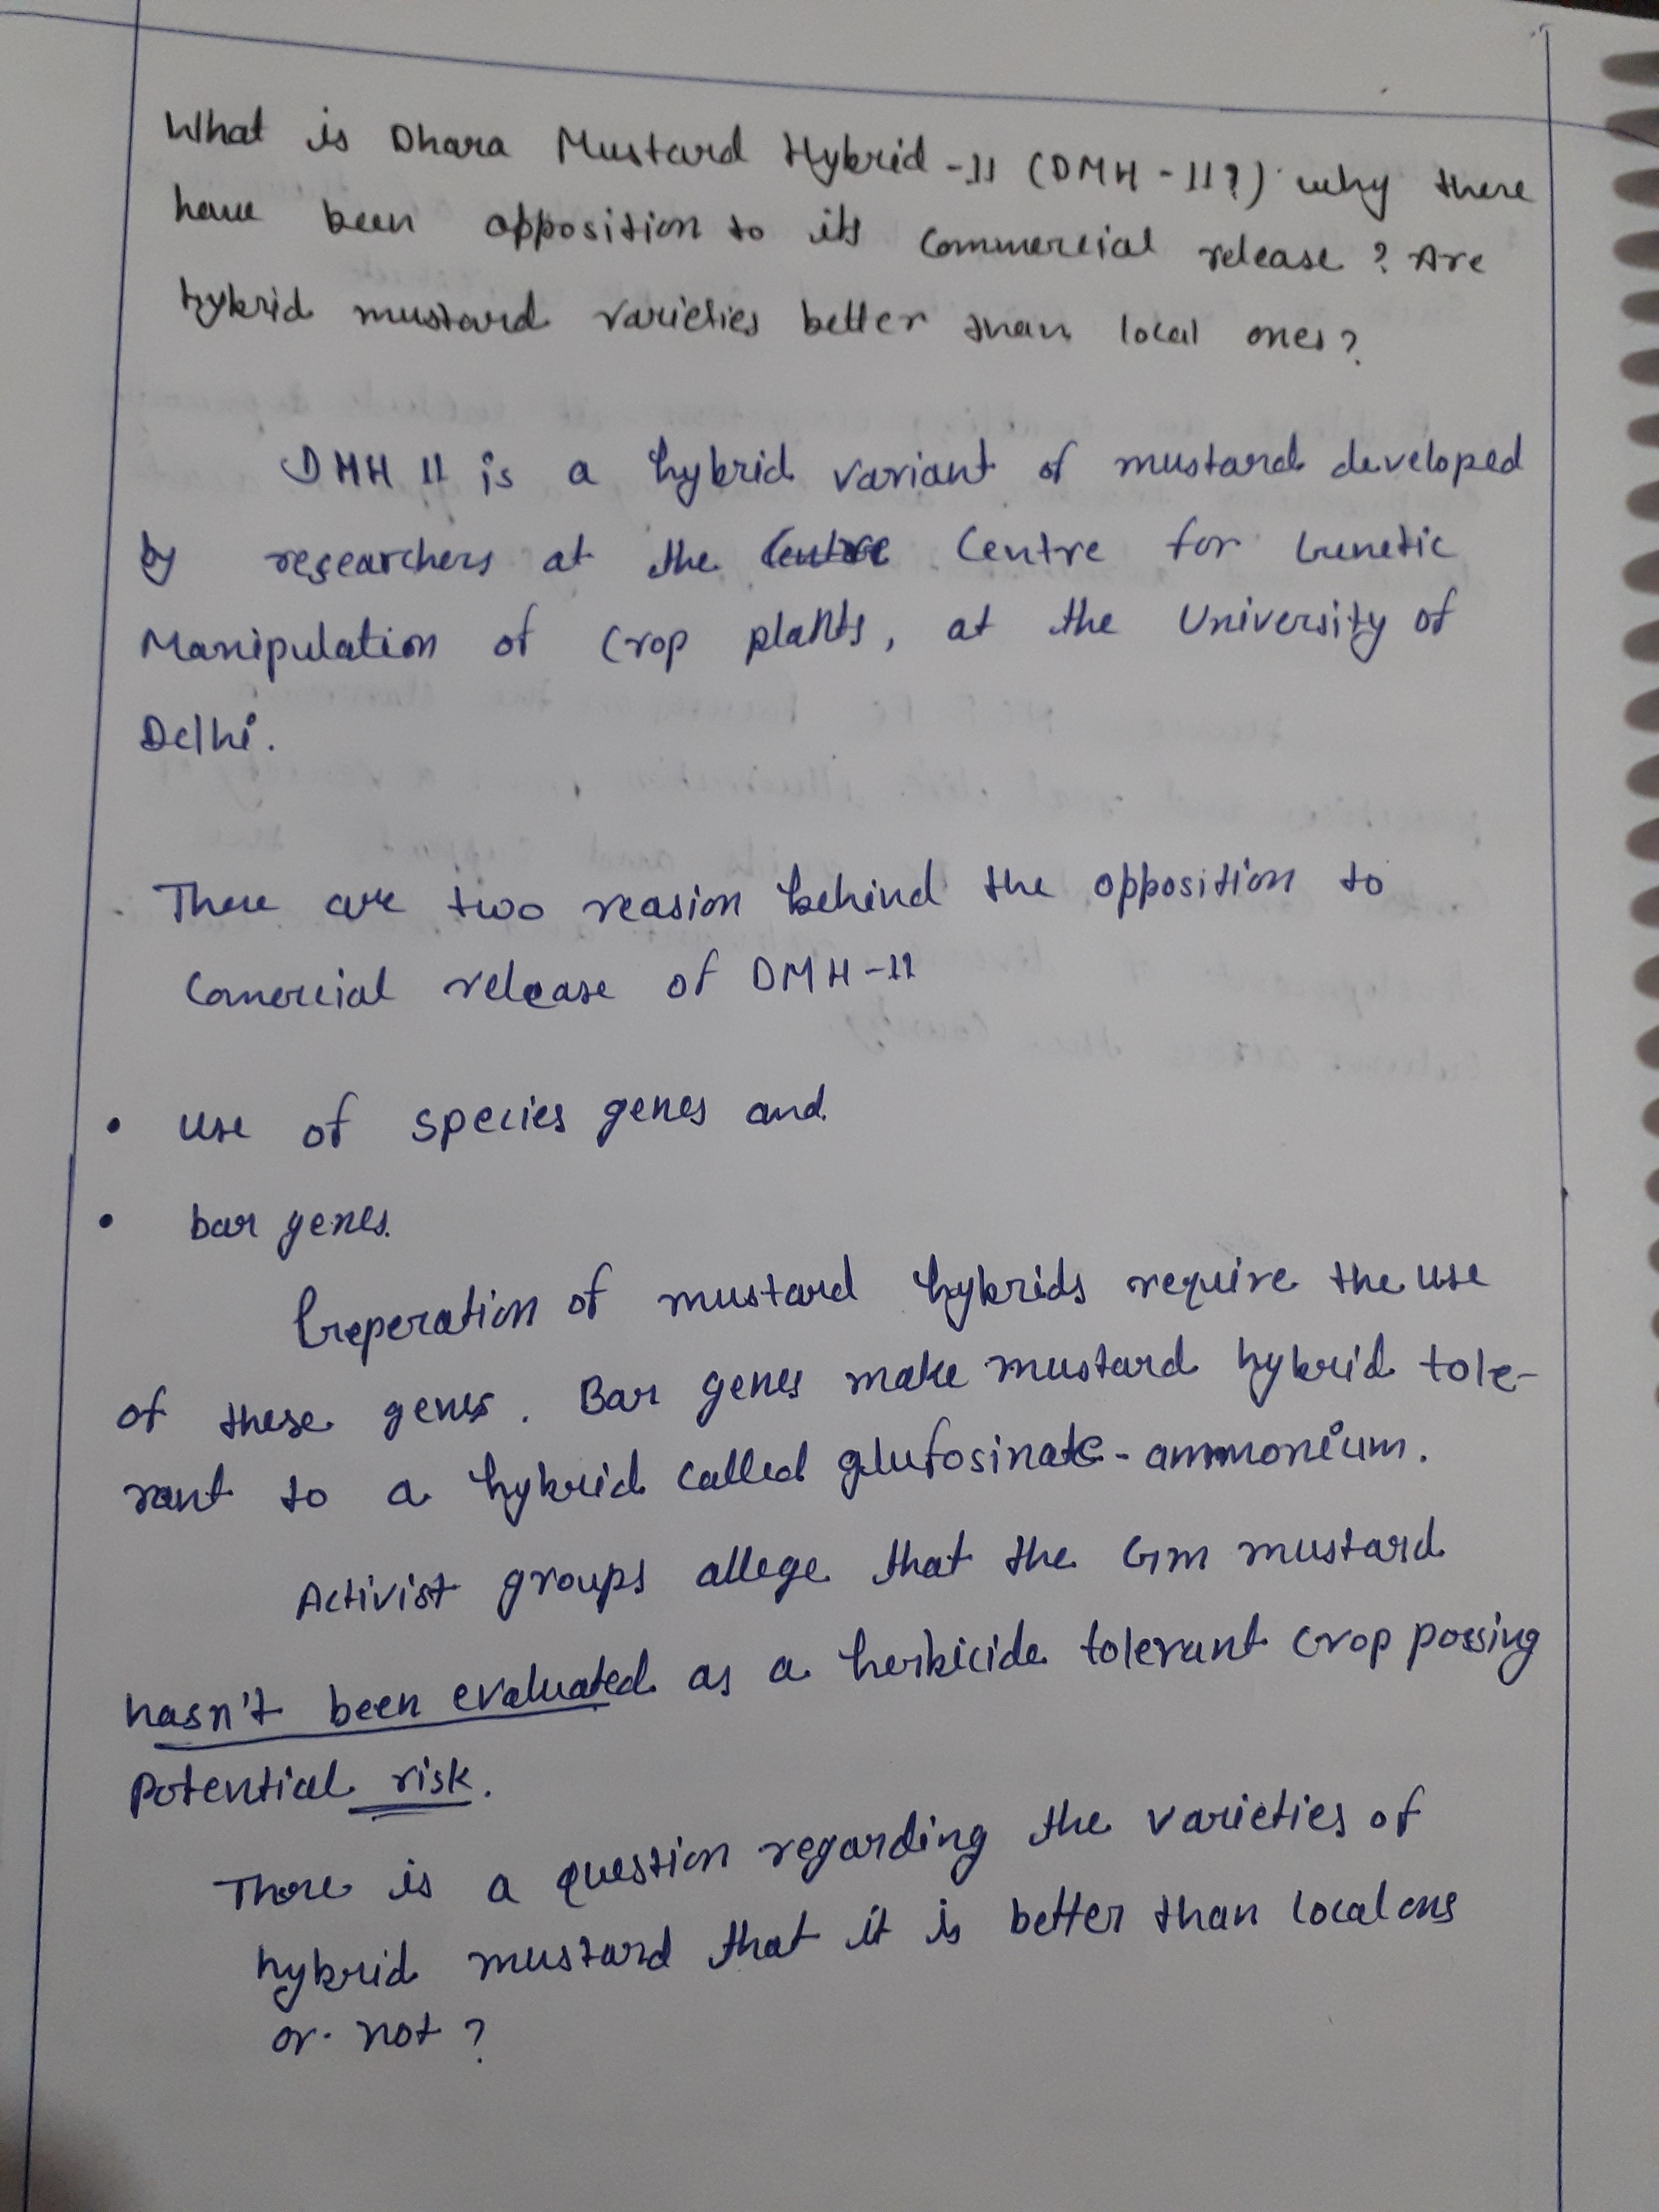 What is Dhara Mustard Hybrid-11 (DMH-11?) why there
have been opposition to its commercial release? Are
hybrid mustard varieties better than local ones?
DMH 11 is a hybrid variant of mustard developed
by researchers at the Centre for Genetic
Manipulation of Crop plants, at the University of
Delhi.
There are two reasion behind the opposition to
Comercial release of DMH-11
• use of species genes and
• bar genes.
Preperation of mustard hybrids require the use
of these genes. Bar genes make mustard hybrid tole-
rant to a hybrid called glufosinate-ammonium.
Activist groups allege that the Gm mustard
hasn't been evaluated as a herbicide tolerant crop possing
Potential risk.
There is a question regarding the varieties of
hybrid mustard that it is better than local ons
or not?